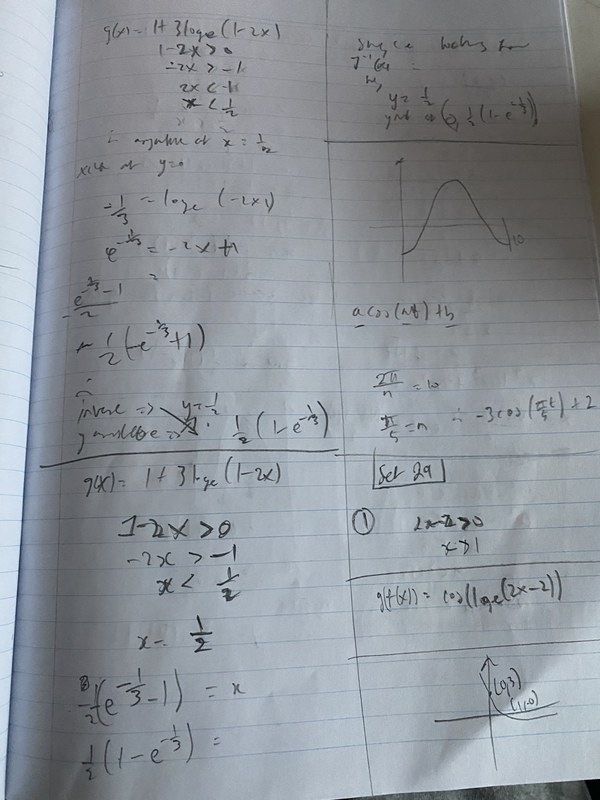 g(x) = 1+3loge(1-2x)
1-2x>0
-2x > -1
2x < 1
x < 1/2
∴ asymptote at x = 1/2
at y=0
-1/3 = loge (-2x+1)
e^{-1/3} = -2x+1
e^{-1/3} - 1 =
-2
1/2(-e^{-1/3}+1)
∴
inverse => y=1/2
=> 1/2(1-e^{-1/3})
g(x) = 1+3loge(1-2x)
1-2x>0
-2x > -1
x < 1/2
x = 1/2
-1/2(e^{-1/3}-1) = x
1/2(1-e^{-1/3}) =
y = 1/2
at (0, 1/2(1-e^{-1/3}))
10
a cos(nt)+b
2π/n = 10
π/5 = n ∴ -3cos(πt/5)+2
Set 29
① 2x-2>0
x>1
g(f(x)) = cos(loge(2x-2))
(0,3)
(1,0)